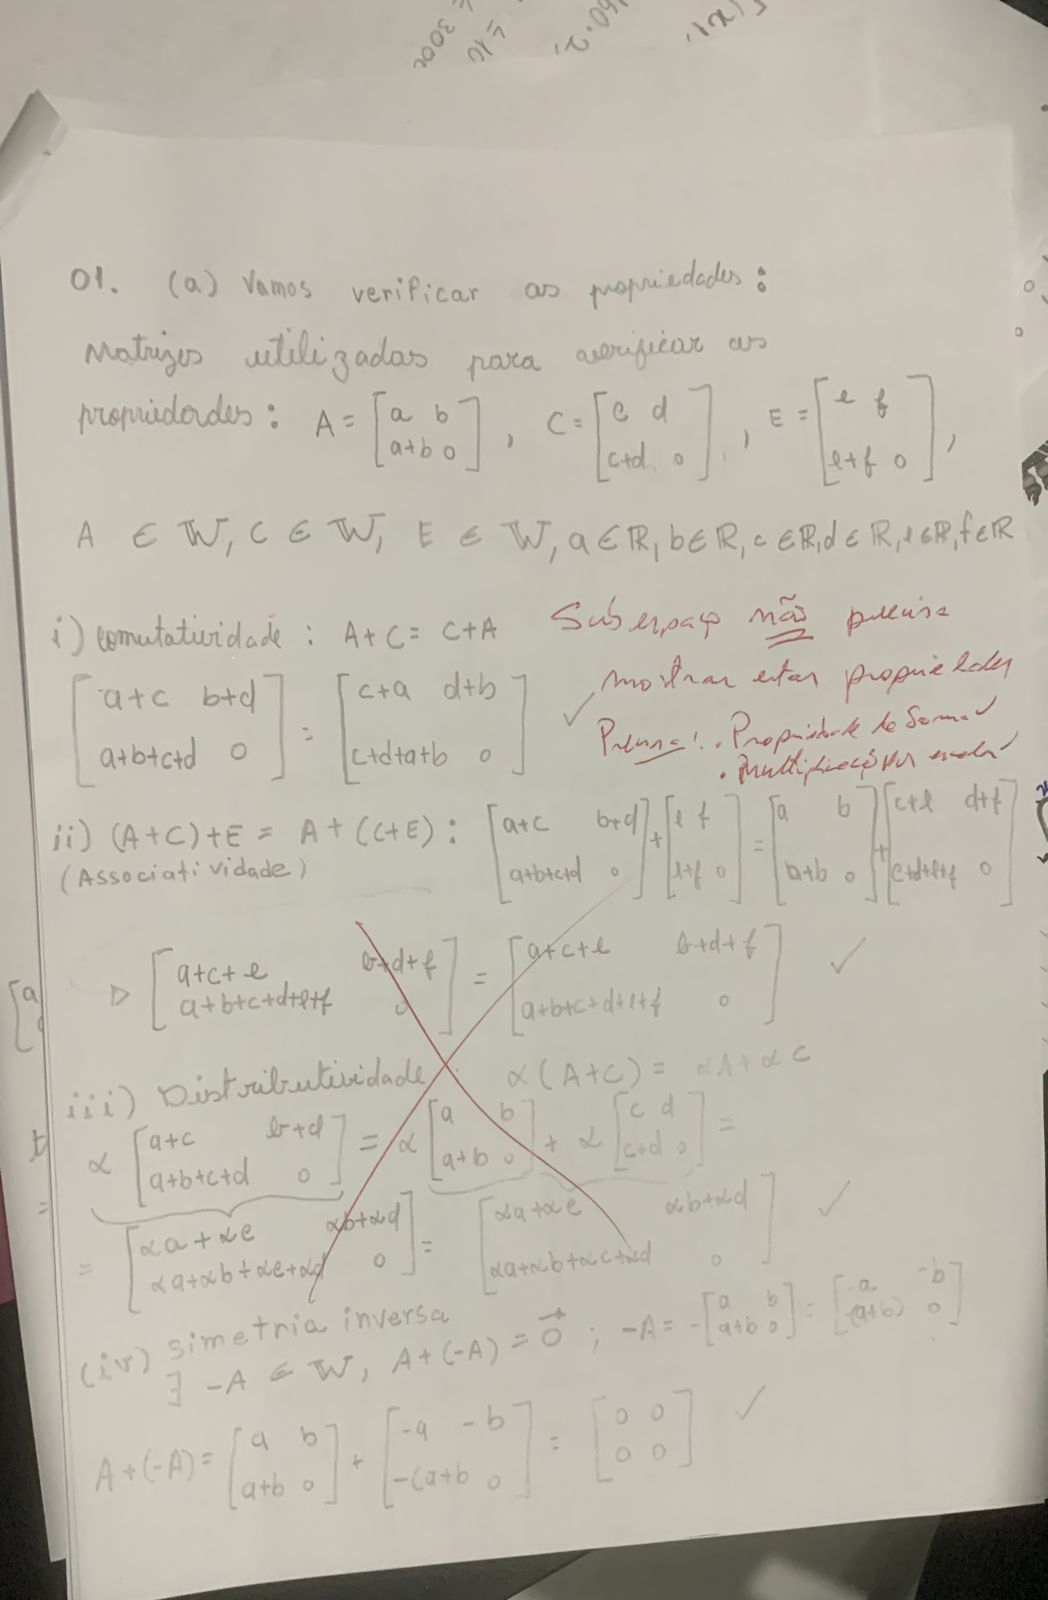 = 300
= 10
01. (a) Vamos verificar as propriedades:
Matrizes utilizadas para verificar as
propriedades: A = [a b; a+b 0], C = [c d; c+d 0], E = [e f; e+f 0],
A ∈ W, C ∈ W, E ∈ W, a ∈ R, b ∈ R, c ∈ R, d ∈ R, e ∈ R, f ∈ R
i) comutatividade: A + C = C + A
Subespaço não precisa
mostrar estas propriedades
Precisa: . Propriedade da Soma ✓
. multiplicação por escalar ✓
[a+c b+d; a+b+c+d 0] = [c+a d+b; c+d+a+b 0] ✓
ii) (A+C)+E = A+(C+E): [a+c b+d; a+b+c+d 0] + [e f; e+f 0] = [a b; a+b 0] + [c+e d+f; c+d+e+f 0]
(Associatividade)
▷ [a+c+e b+d+f; a+b+c+d+e+f 0] = [a+c+e b+d+f; a+b+c+d+e+f 0] ✓
iii) Distributividade α(A+C) = αA + αC
α [a+c b+d; a+b+c+d 0] = α [a b; a+b 0] + α [c d; c+d 0] =
= [αa+αc αb+αd; αa+αb+αc+αd 0] = [αa+αc αb+αd; αa+αb+αc+αd 0] ✓
(iv) simetria inversa
∃ -A ∈ W, A+(-A) = 0⃗ ; -A = -[a b; a+b 0] = [-a -b; -(a+b) 0]
A+(-A) = [a b; a+b 0] + [-a -b; -(a+b 0] = [0 0; 0 0] ✓